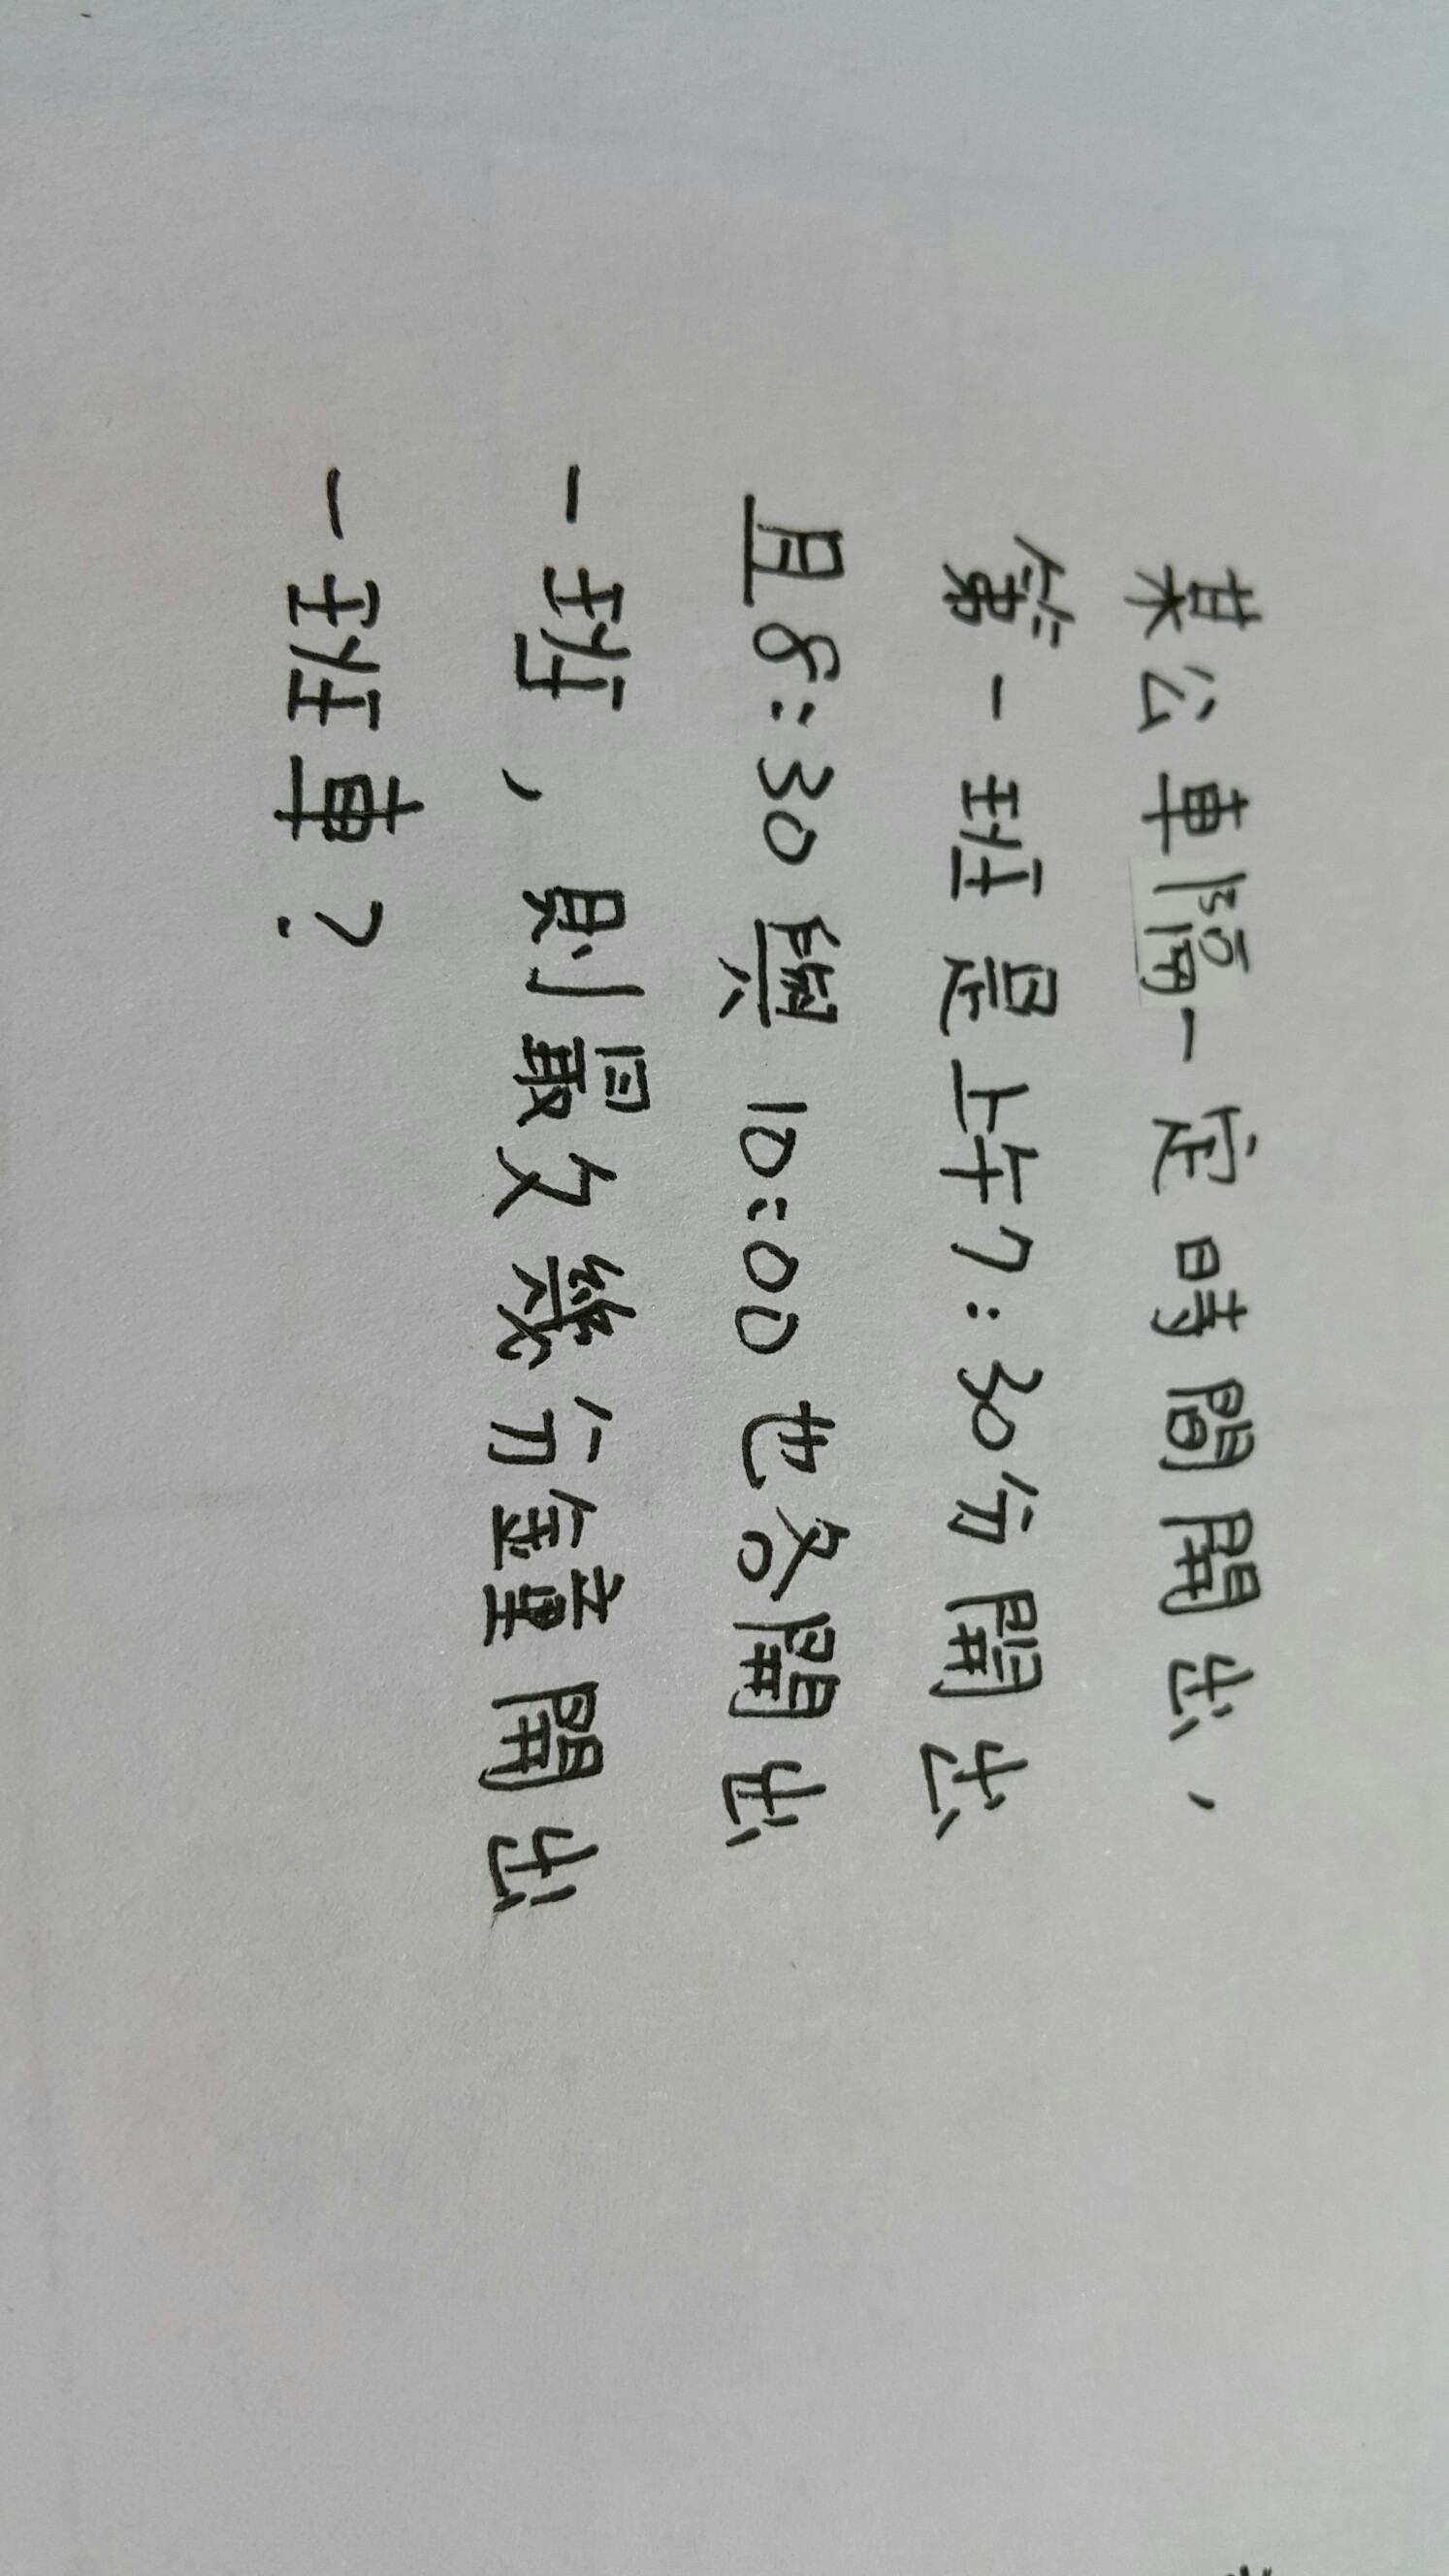 某公車隔一定時間開出，
第一班是上午7:30分開出
且8:30與10:00也各開出
一班，則最久幾分鐘開出
一班車？